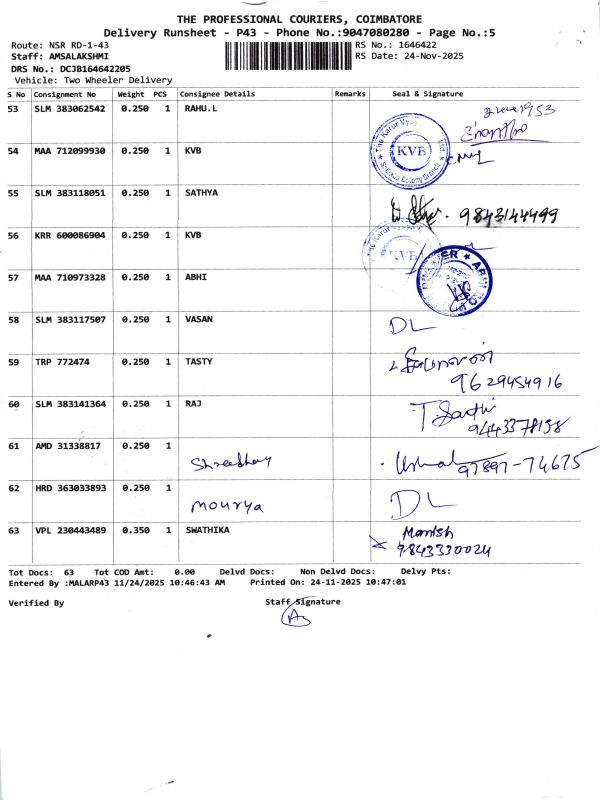 THE PROFESSIONAL COURIERS, COIMBATORE
Delivery Runsheet - P43 - Phone No.:9047080280 - Page No.:5
Route: NSR RD-1-43 RS No.: 1646422
Staff: AMSALAKSHMI RS Date: 24-Nov-2025
DRS No.: DCJB164642205
Vehicle: Two Wheeler Delivery
S No Consignment No Weight PCS Consignee Details Remarks Seal & Signature
53 SLM 383062542 0.250 1 RAHU.L
54 MAA 712099930 0.250 1 KVB KVB
55 SLM 383118051 0.250 1 SATHYA 9843144499
56 KRR 600086904 0.250 1 KVB KVB
57 MAA 710973328 0.250 1 ABHI
58 SLM 383117507 0.250 1 VASAN DL
59 TRP 772474 0.250 1 TASTY
9629454916
60 SLM 383141364 0.250 1 RAJ
9443378158
61 AMD 31338817 0.250 1 Shreedhar 97897-74675
62 HRD 363033893 0.250 1 Mourya DL
63 VPL 230443489 0.350 1 SWATHIKA Manish
9843330024
Tot Docs: 63 Tot COD Amt: 0.00 Delvd Docs: Non Delvd Docs: Delvy Pts:
Entered By :MALARP43 11/24/2025 10:46:43 AM Printed On: 24-11-2025 10:47:01
Verified By Staff Signature